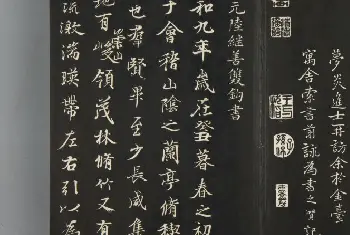 夢炎進士再訪余於金臺
寓舍索言前詠為書之
元陸繼善雙鉤書
和九年歲在癸丑暮春之初
于會稽山陰之蘭亭脩稧
也群賢畢至少長咸集
地有崇山峻領茂林脩竹又有
流激湍暎帶左右引以為